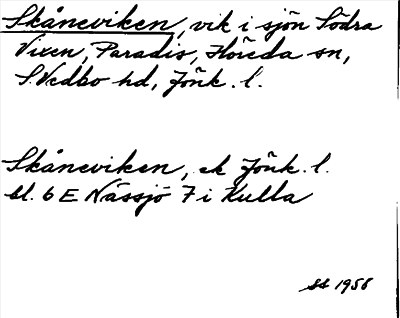 Skåneviken, vik i sjön Södra
Vixen, Paradis, Höreda sn,
S. Vedbo hd, Jönk. l.
Skåneviken, ek Jönk. l.
bl. 6 E Nässjö 7 i Kulla
SS 1958